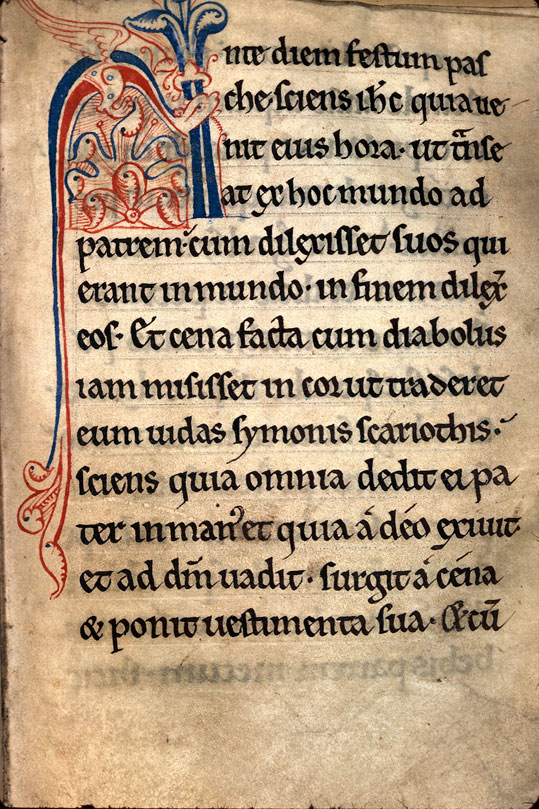 Ante diem festum pas
che· sciens ih̄c quia ue
nit eius hora· ut t̄nse
at ex hoc mundo ad
patrem· cum dilexisset suos qui
erant in mundo· in finem dilex̄
eos· Et cena facta cum diabolus
iam misisset in cor ut traderet
eum iudas symonis scariothis·
sciens quia omnia dedit ei pa
ter in man᷒ et quia a deo exiuit
et ad dn̄m uadit· surgit a cena
& ponit uestimenta sua· Et cū